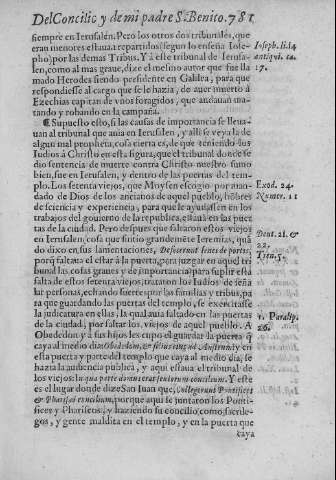 Del Concilio y de mi padre S. Benito. 781
siempre en Ierusalén. Pero los otros dos tribunales, que
eran menores estauã repartidos (segun lo enseña Iose-
pho) por las demas Tribus. Y à este tribunal de Ierusa-
len, como al mas graue, dize el mesmo autor que fue lla
mado Herodes siendo presidente en Galilea, para que
respondiesse al cargo que se le hazia, de auer muerto à
Ezechias capitan de vnos foragidos, que andauan ma-
tando y robando en la campaña.
Ioseph. li. 14
antiqui. ca.
17.
¶ Supuesto esto, si las causas de importancia se lleua-
uan al tribunal que auia en Ierusalen, y alli se veya la de
algun mal propheta, cosa cierta es, que teniendo los
Iudios à Christo en esta figura, que el tribunal donde se
dio sentencia de muerte contra Christo nuestro sumo
bien, fue en Ierusalen, y dentro de las puertas del tem-
plo. Los setenta viejos, que Moysen escogio por man-
dado de Dios de los ancianos de aquel pueblo, hõbres
de sciencia y experiencia, para que le ayudassen en los
trabajos del gouierno de la republica, estauã en las puer
tas de la ciudad. Pero despues que faltaron estos viejos
en Ierusalen (cosa que sintio grandemẽte Ieremias, quã
do dixo en sus lamentaciones,
porq̃ faltaua el estar à la puerta, para juzgar en aquel tri
bunal las cosas graues y de importancia) para suplir esta
falta de estos setenta viejos, trataron los Iudios de seña
lar personas, echando suerte entre las familias y tribus, pa
ra que guardando las puertas del templo, se exercitasse
la judicatura en ellas, la qual auia faltado en las puertas
de la ciudad, por faltar los viejos de aquel pueblo. A
Obededon y à sus hijos les cupo el guardar la puerta q̃
caya al medio dia
esta puerta y parte del templo que caya al medio dia, se
hazia la audiencia publica, y aqui estaua el tribunal de
los viejos: in qua parte domus erat seniorum concilium. Y este
es el lugar donde dize San Iuan que, Collegerunt Pontifices
& Pharisaei concilium, porque aqui se juntaron los Ponti-
fices y Phariseos, y haziendo su concilio como sacrile-
gos, y gente maldita en el templo, y en la puerta que
caya
Exod. 24.
Numer. 11
Deut. 21. &
22.
Tren. 5.
1. Paralip.
26.